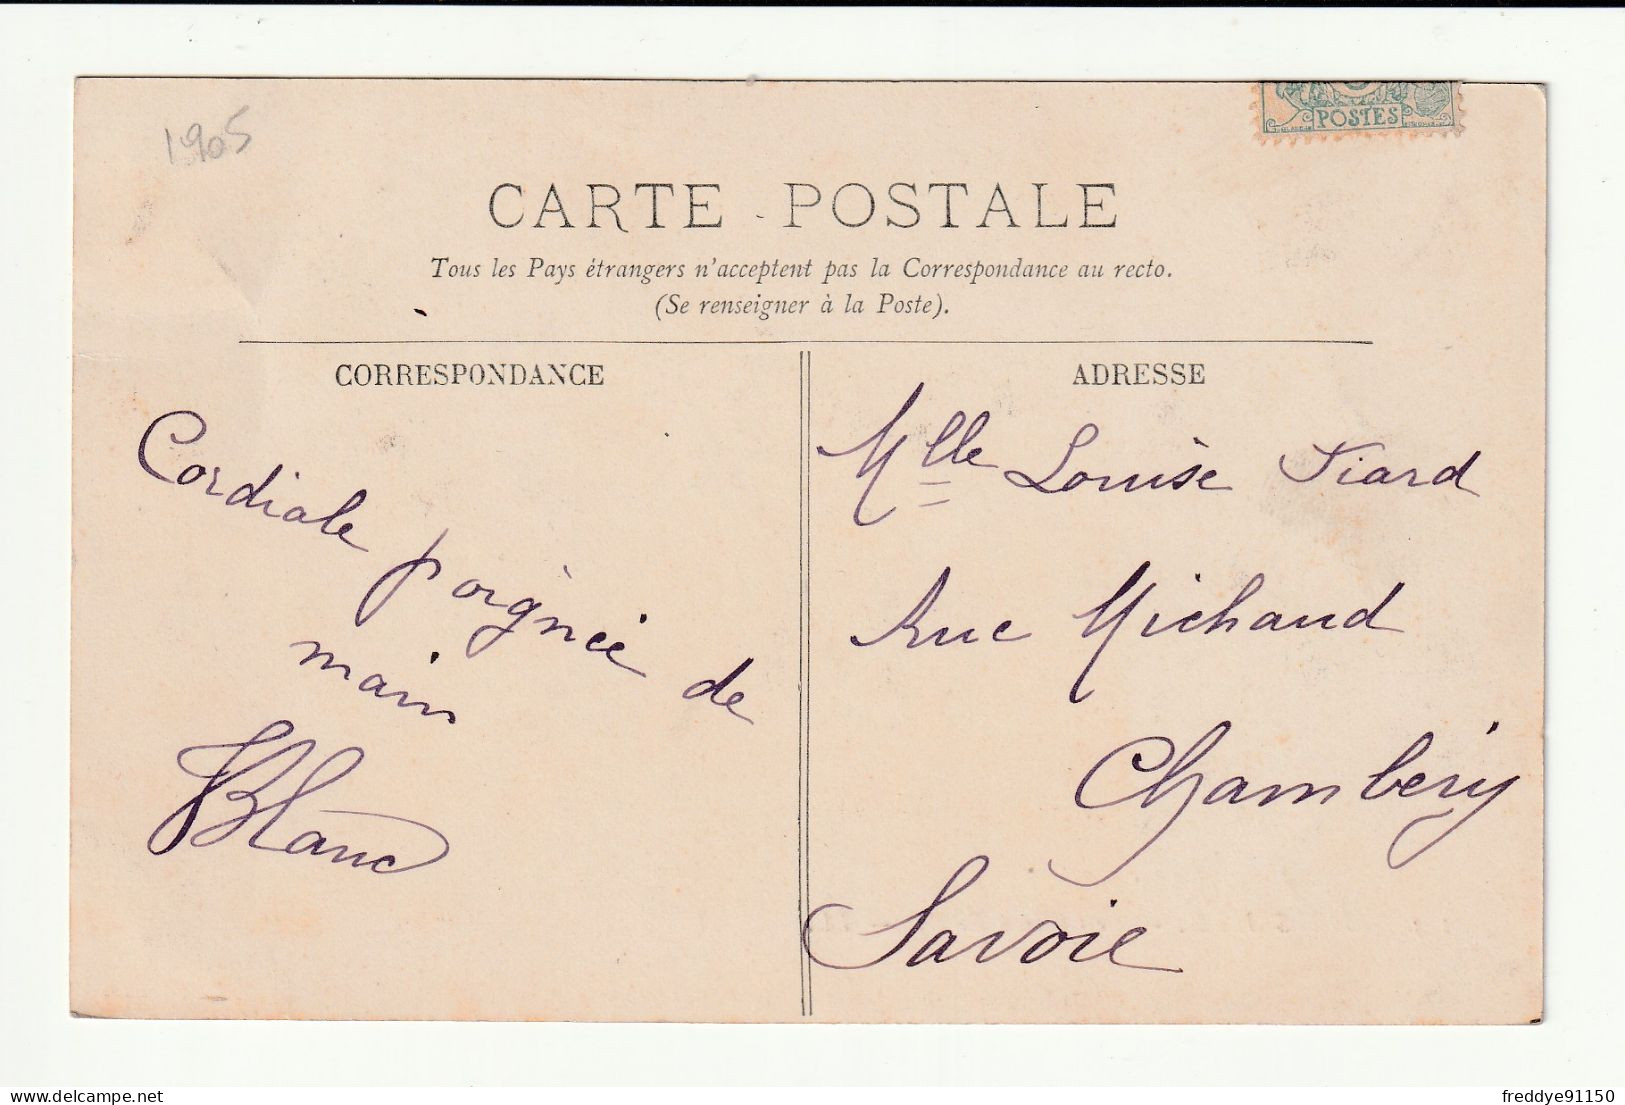 1905
POSTES
CARTE POSTALE
Tous les Pays étrangers n'acceptent pas la Correspondance au recto.
(Se renseigner à la Poste).
CORRESPONDANCE
Cordiale poignée de
main
Blanc
ADRESSE
Mlle Louise Tiard
Rue Michaud
Chambéry
Savoie
freddye91150